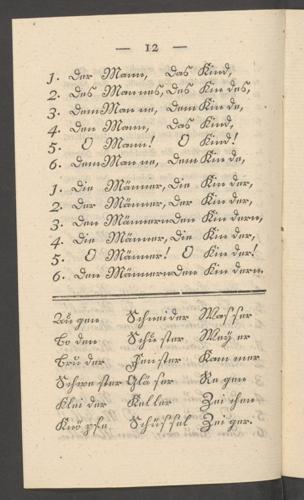 — 12 —
1. Der Mann, Das Kind,
2. Des Mannes, Des Kin des,
3. Dem Man ne, Dem Kin de,
4. Den Mann, Das Kind,
5. O Mann! O Kind!
6. Dem Man ne, Dem Kin de,
1. Die Männer, Die Kin der,
2. Der Männer, Der Kin der,
3. Den Männern Den Kin dern,
4. Die Männer, Die Kin der,
5. O Männer! O Kin der!
6. Den Männern Den Kin dern.
Au gen Schnei der Was ser
Bo den Schu ster Wey er
Bru der Fen ster Kam mer
Schwe ster Glä ser Re gen
Klei der Kel ler Zei chen
Knöp fe Schüs sel Zei ger.